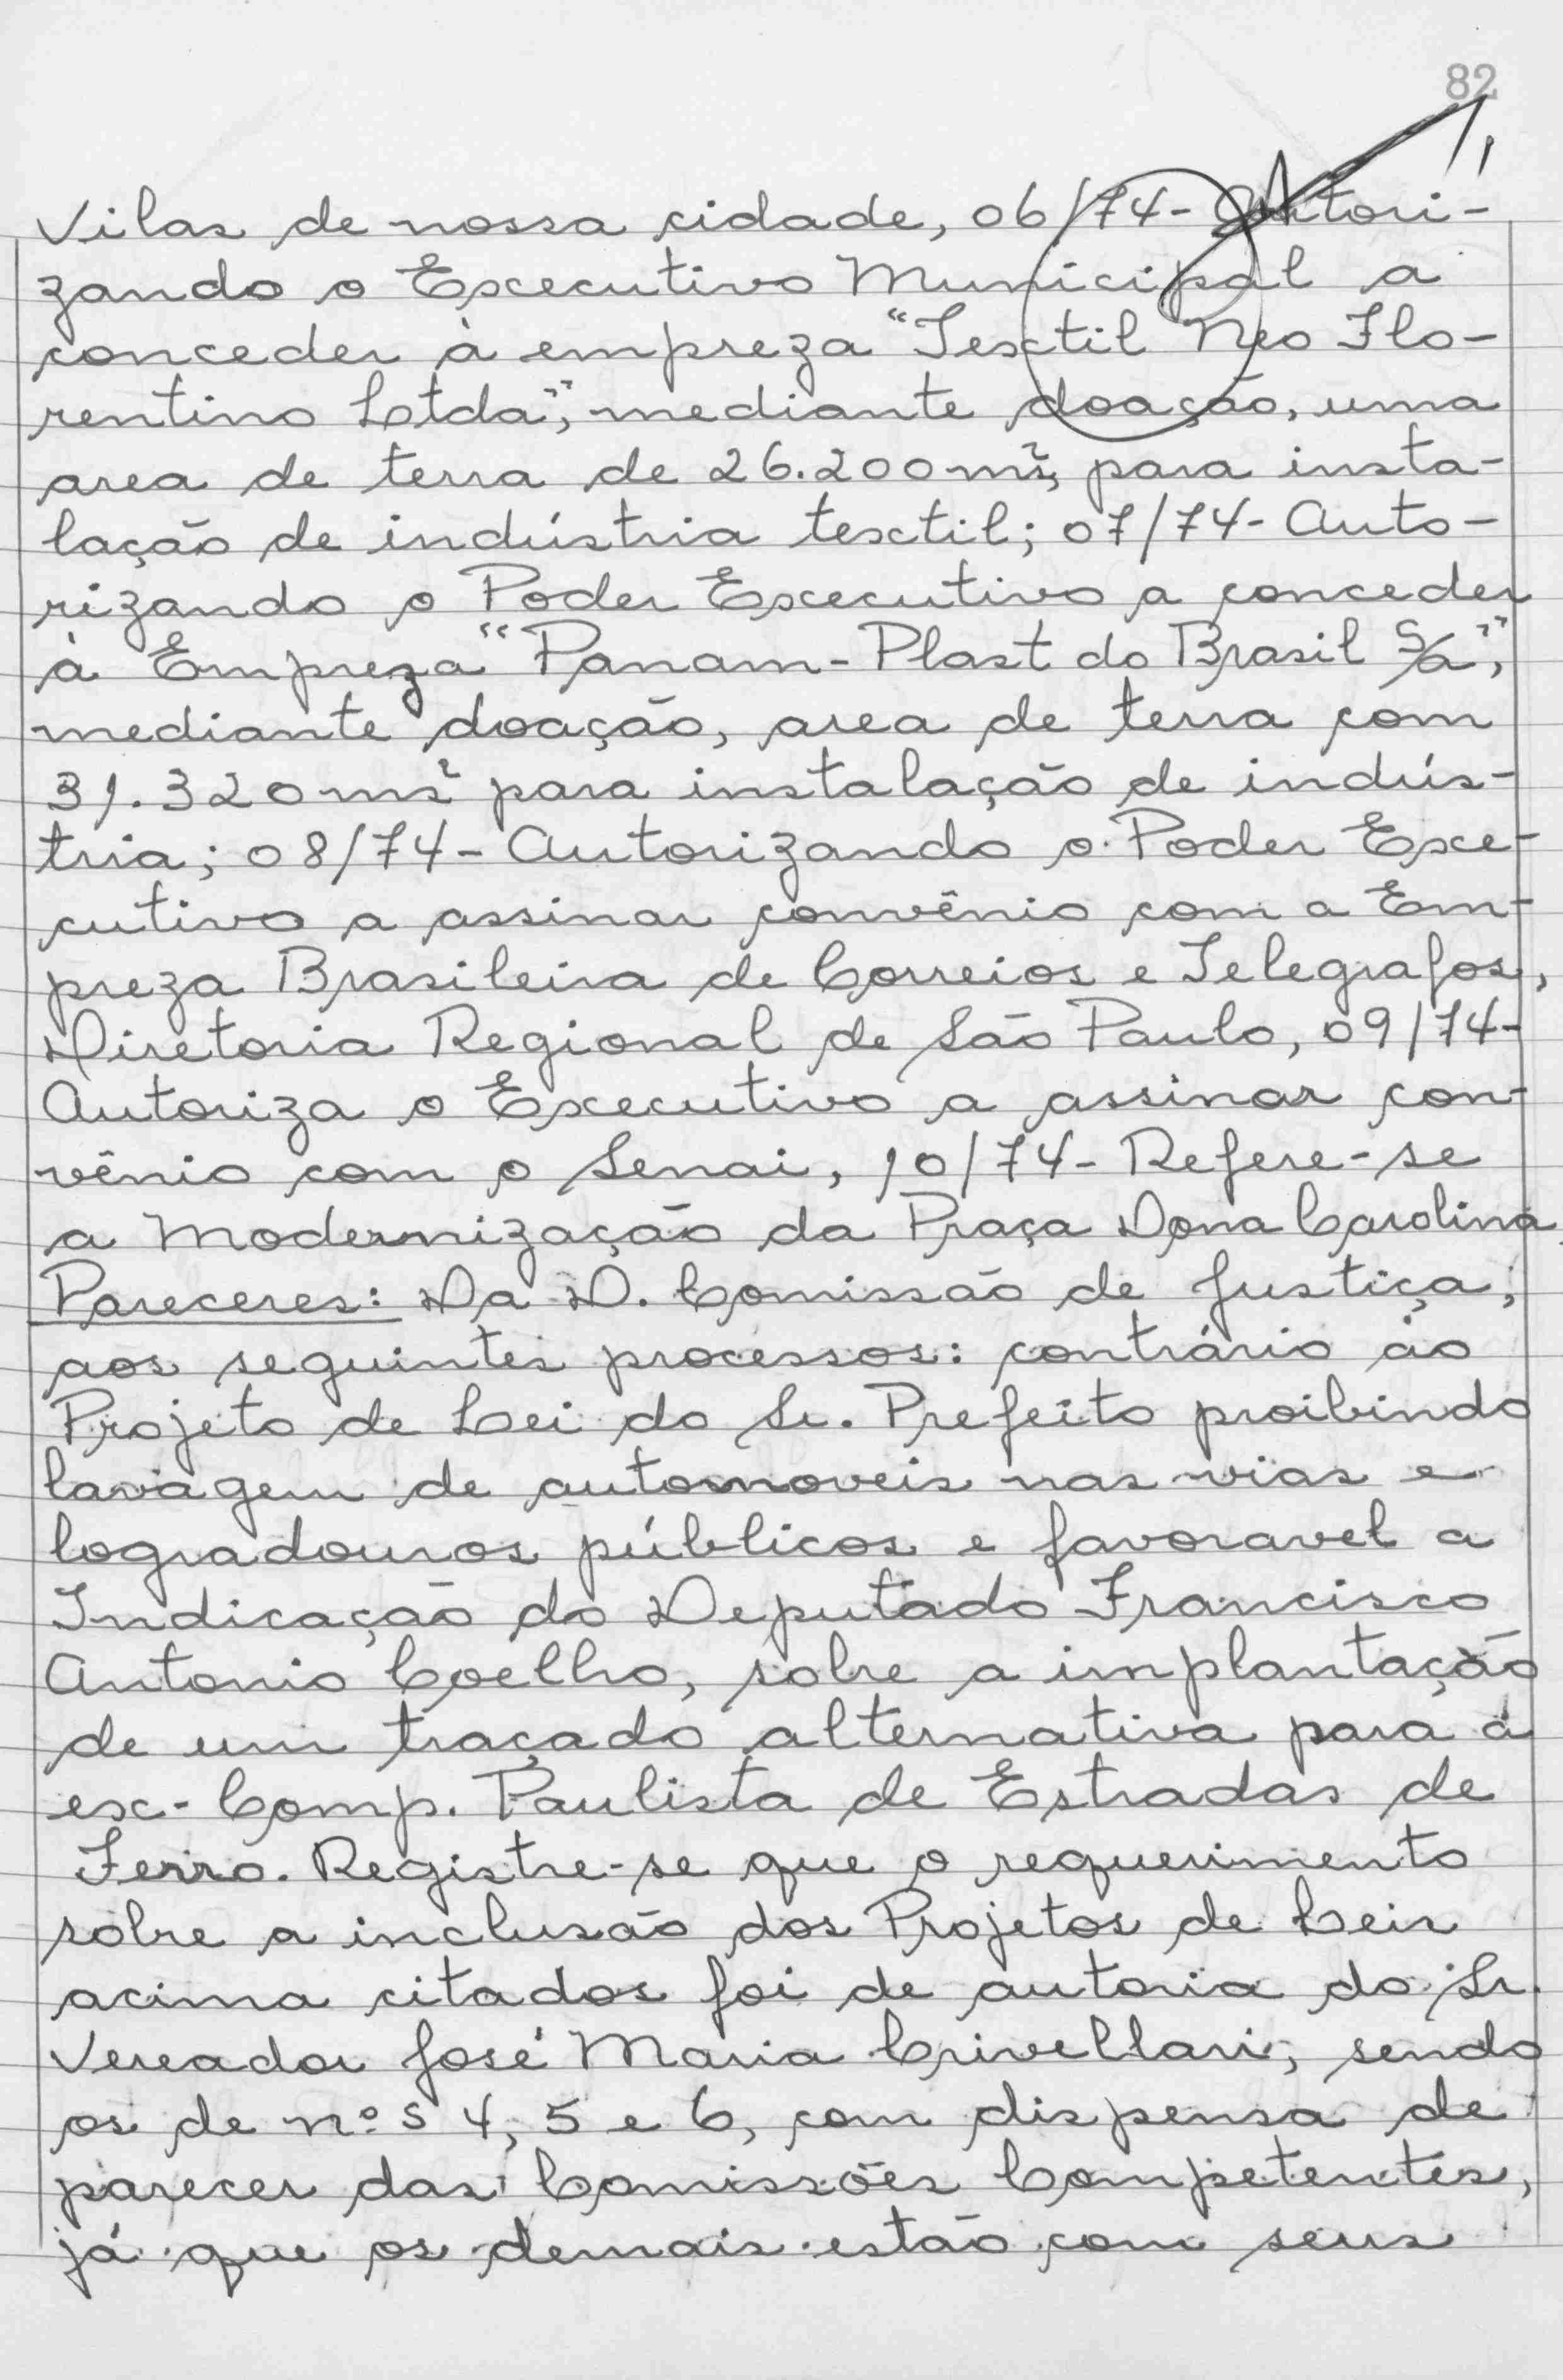 82
Vilas de nossa cidade, 06/74- Autori-
zando o Executivo Municipal a
conceder à empreza "Textil Neo Flo-
rentino Ltda", mediante doação, uma
area de terra de 26.200ms², para insta-
lação de indústria textil; 07/74- Auto-
rizando o Poder Executivo a conceder
à Empreza "Panam-Plast do Brasil S/a",
mediante doação, area de terra com
31.320ms² para instalação de indús-
tria; 08/74- Autorizando o Poder Exe-
cutivo a assinar convênio com a Em-
preza Brasileira de Correios e Telegrafos,
Diretoria Regional de São Paulo, 09/74-
Autoriza o Executivo a assinar con-
vênio com o Senai, 10/74- Refere-se
a Modernização da Praça Dona Carolina.
Pareceres: Da D. Comissão de Justiça,
aos seguintes processos: contrário ao
Projeto de Lei do Sr. Prefeito proibindo
lavagem de automoveis nas vias e
logradouros públicos e favoravel a
Indicação do Deputado Francisco
Antonio Coelho, sobre a implantação
de um traçado alternativa para a
ex- Comp. Paulista de Estradas de
Ferro. Registre-se que o requerimento
sobre a inclusão dos Projetos de Leis
acima citados foi de autoria do Sr.
Vereador José Maria Crivellari, sendo
os de n.ºs 4, 5 e 6, com dispensa de
parecer das Comissões Competentes,
já que os demais estão com seus